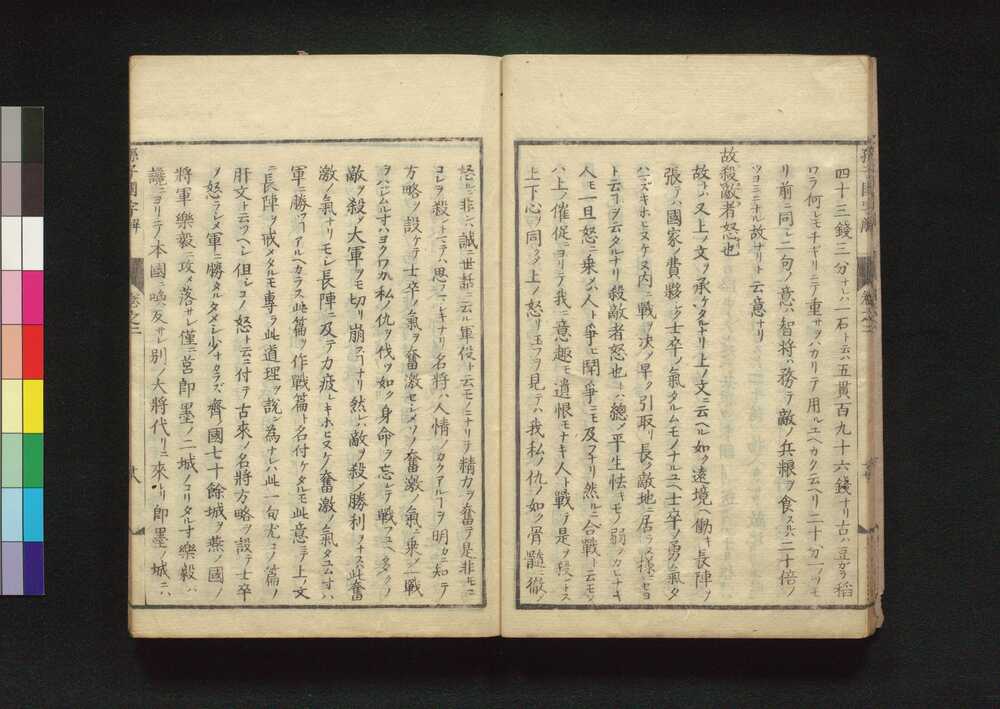 四十三錢三分ナレハ一石ト云ハ五貫百九十六錢ナリ古ハ豆ガラ稻
ワラ何レモチギリニテ重サヲハカリテ用ルユヘカク云ヘリ二十分一ツヽモ
リ前ニ同シ二句ノ意ハ智将ハ務テ敵ノ兵粮ヲ食スルハ二十倍ノ
ツヨミニナル故ナリト云意ナリ
故殺敵者怒也
故トハ又上ノ文ヲ承ケタルナリ上ノ文ニ云ヘル如ク遠境ヘ働キ長陣ヲ
張テハ國家ノ費夥シク士卒ノ氣タルムモノナルユヘ士卒ノ勇氣タ
ハミズキホヒヌケヌ内ニ戰ヲ決メ早ク引取リ長ク敵地ニ居ラヌ様ニセヨ
ト云コヲ云タルナリ殺敵者怒也トハ總メ平生怯キモノ弱クカヒナキ
人モ一旦怒ニ乗スレハ人ト爭ヒ鬪爭ニモ及フナリ然ルニ合戰ト云モノ
ハ上ノ催促ニヨリテ我ニ意趣モ遺恨モナキ人ト戰テ是ヲ殺ナリ
上下心ヲ同クメ上ノ怒リ玉フヲ見テハ我私ノ仇ノ如ク骨髓ニ徹メ
怒ルニ非レハ誠ニ世話ニ云ル軍役ト云モノニナリテ精力ヲ奮テ是非モニ
コレヲ殺ントマテハ思ヌコトキナリ名將ハ人情ノカクアルコヲ明カニ知テ
方略ヲ設ケテ士卒ノ氣ヲ奮激セシメソノ奮激ノ氣ニ乗メ一戰
ヲハゲムルオハヨクワカ私ノ仇ヲ伐ツ如ク身命ヲ忘レテ戰フユヘ多クノ
敵ヲ殺メ大軍ヲモ切リ崩スコナリ然レハ敵ヲ殺メ勝利ヲナスハ此奮
激ノ氣ナリモシ長陣ニ及テカ疲レキホヒヌケ奮激ノ氣タユムオハ
軍ニ勝ツコアルヘカラス此篇ヲ作戰篇ト名付ケタルモ此意ニテ上ノ文
ニ長陣ヲ戒メタルモ専ラ此道理ヲ説ン為ナレハ此一句尤コノ篇ノ
肝文ト云ツヘシ但シコノ怒ト云付テ古來ノ名將方略ヲ設テ士卒
ノ怒ラシメ軍ニ勝タルタメシ少カラズ齊ノ國七十餘城ヲ燕ノ國ノ
將軍樂毅ニ攻メ落サレ僅ニ莒即墨ノ二城ノコリタルオ樂毅ハ
讒ニヨリテ本國ニ喚反サレ別ノ大將代リニ來リ即墨ノ城ニハ
孫子國字解
卷之二